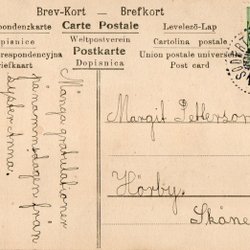 Brev-Kort — Brefkort
spondenzkarte Carte Postale Levelező-Lap
Dopisnice Weltpostverein Cartolina postale
Correspondenzkarte Postkarte Union postale universelle
riefkaart Dopisnica Post card
Många gratulationer
på namnsdagen från
Syster Anna.
Margit Petterson
Hörby.
Skåne